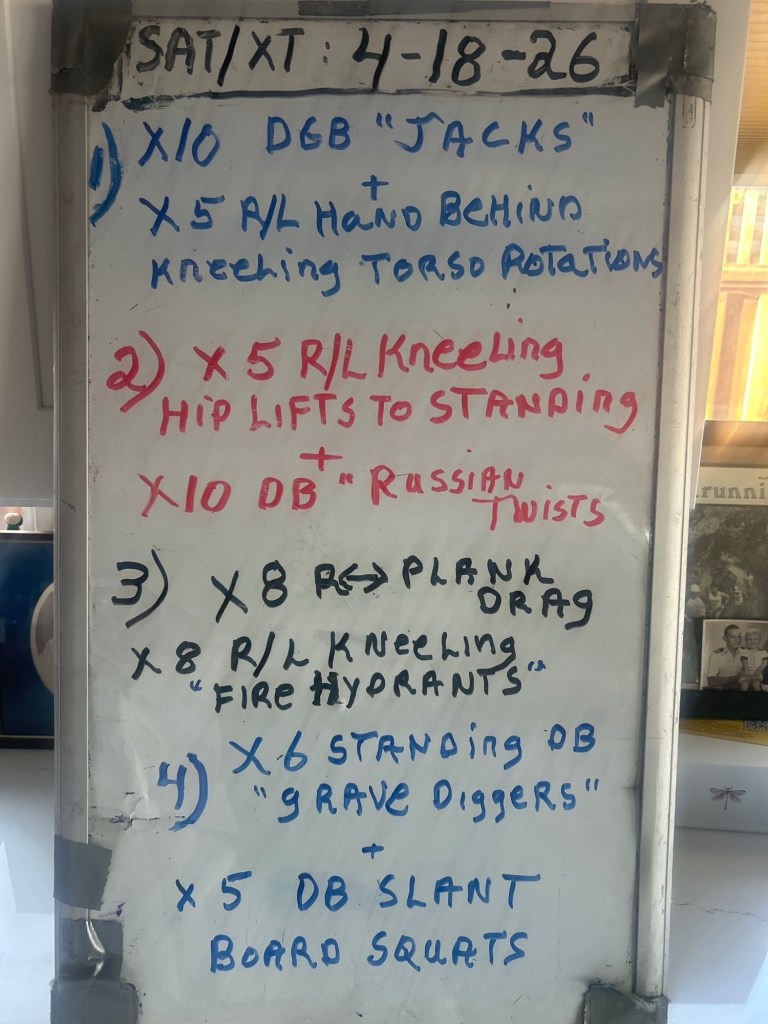 SAT/XT: 4-18-26
1) X10 DGB "JACKS"
+
X5 R/L HAND BEHIND
KneeLing TORSO ROTATIONS
2) X 5 R/L KneeLing
HIP LIFTS TO STANDing
+
X10 DB "RUSSIAN
TWISTS
3) X8 R↔ PLANK
DRAg
X8 R/L KNeeLing
"FIRe HYDRANTS"
4) X6 STANDing DB
"gRAVe DiggeRS"
+
X5 DB SLANT
BOARD SQUATS
runni